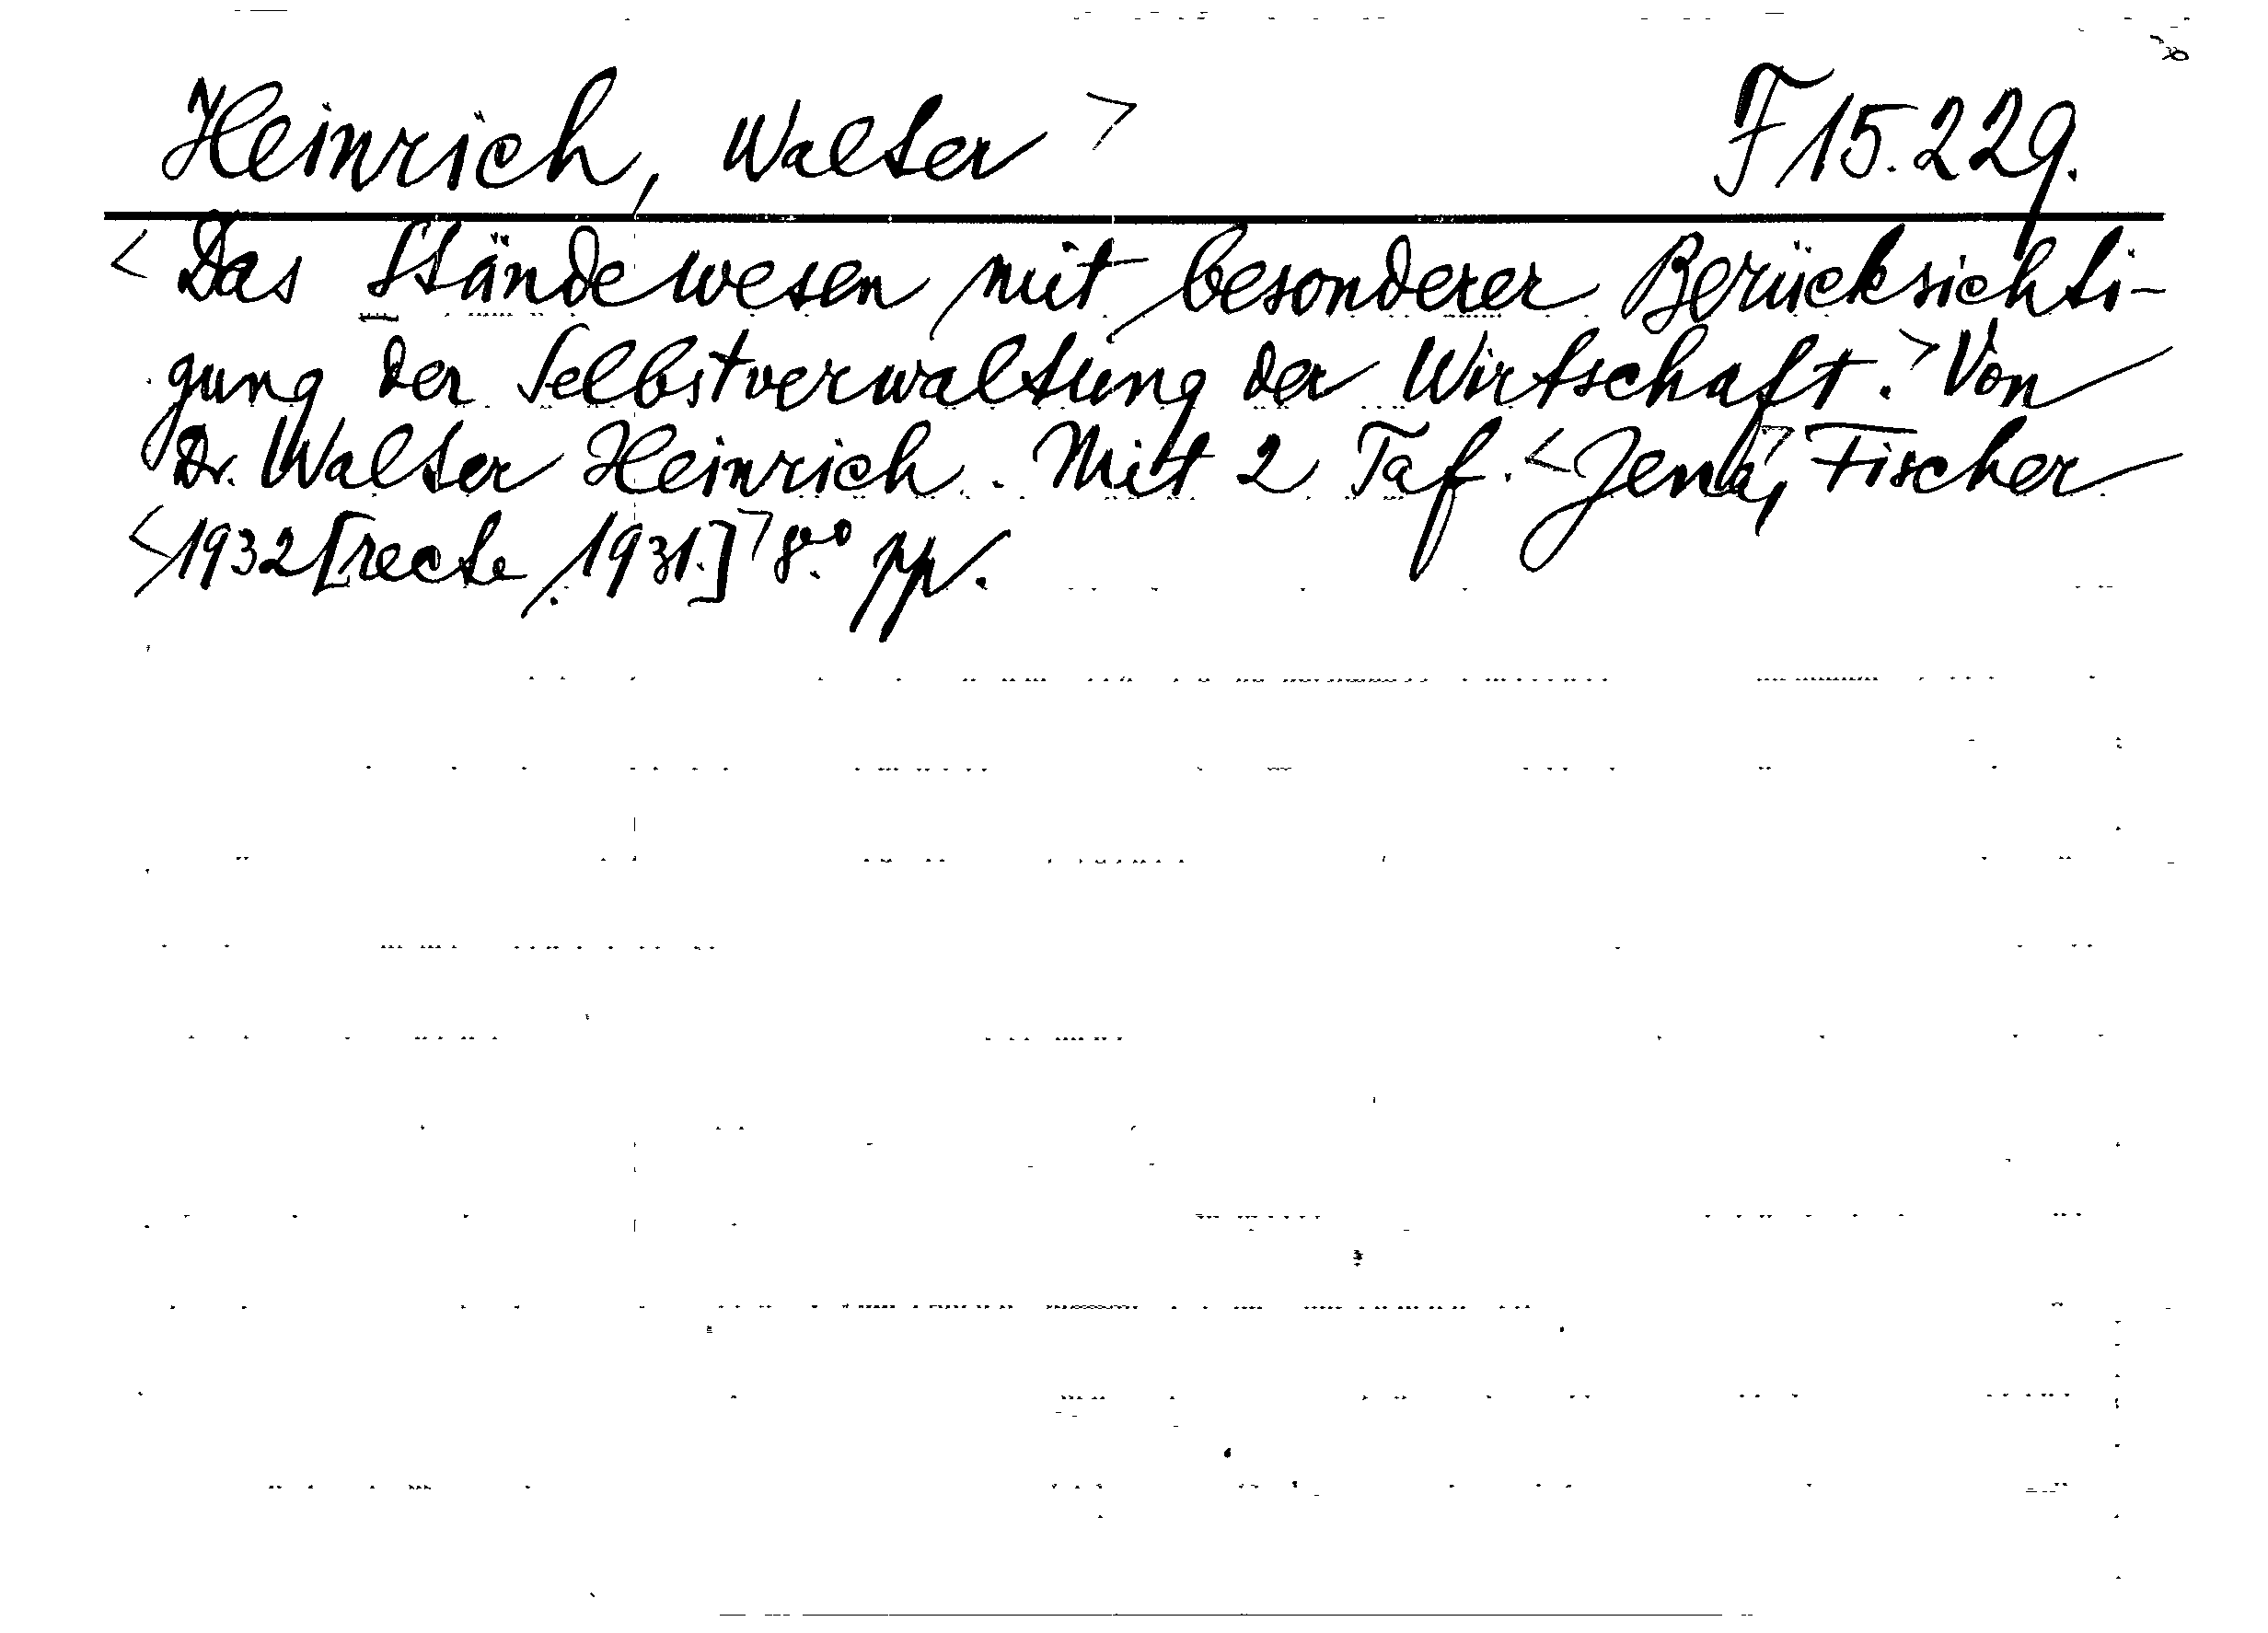 Heinrich, Walter > F 15.229.
< Das Ständewesen mit besonderer Berücksichti-
gung der Selbstverwaltung der Wirtschaft.> Von
Dr. Walter Heinrich. Mit 2 Taf. < Jena,> Fischer
<1932 [recte 1931.]> 8.° pp.